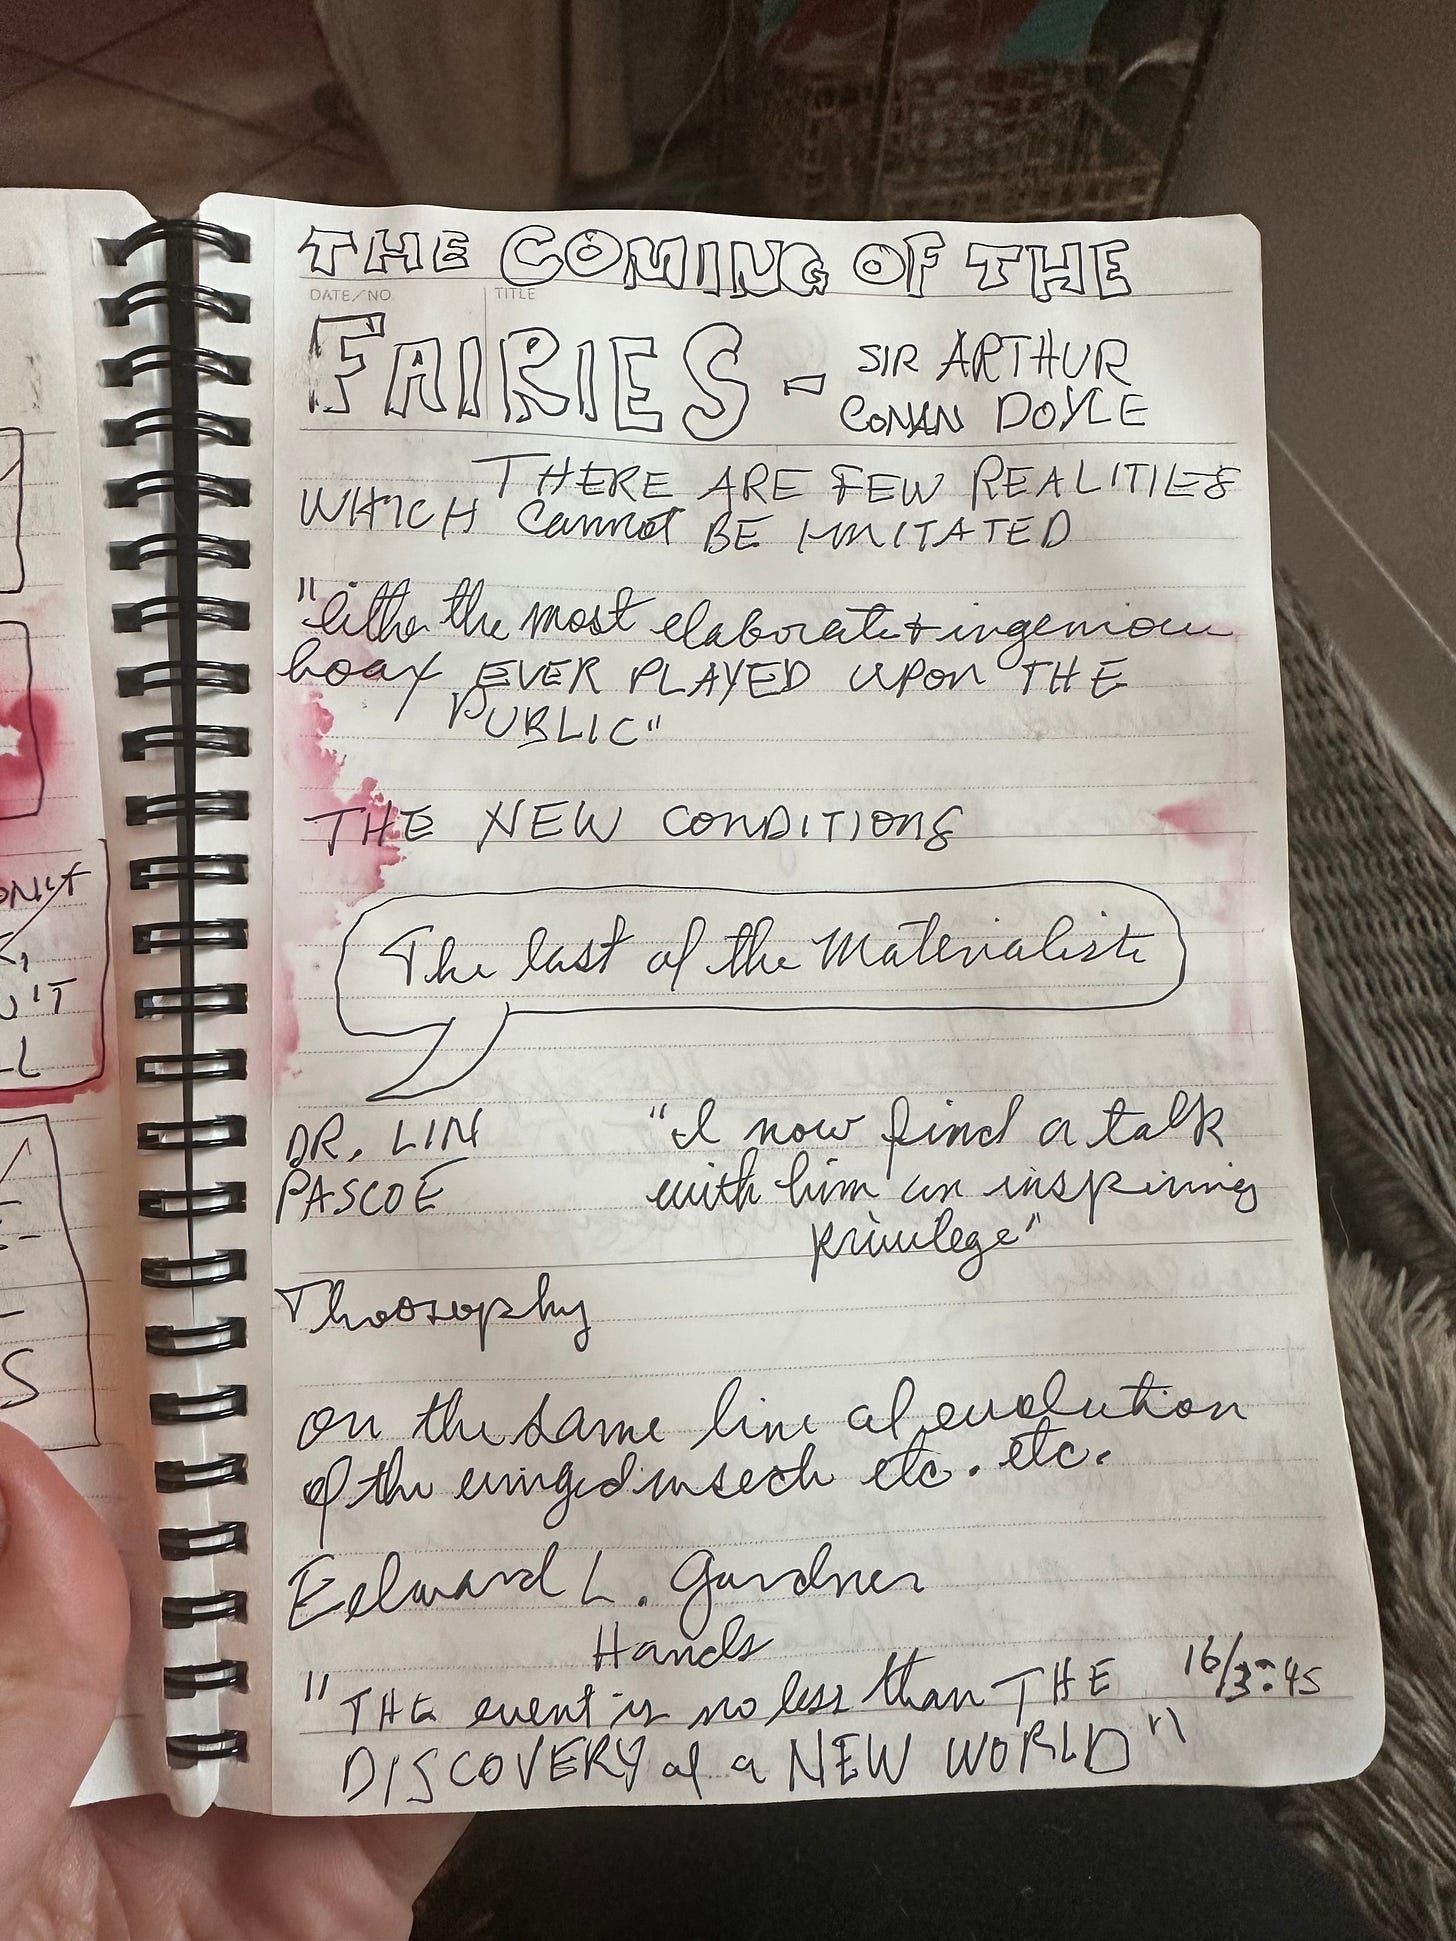 THE COMING OF THE
DATE/NO. TITLE
FAIRIES - SIR ARTHUR
CONAN DOYLE
THERE ARE FEW REALITIES
WHICH cannot BE IMITATED
"either the most elaborate + ingenious
hoax EVER PLAYED UPON THE
PUBLIC"
THE NEW CONDITIONS
The last of the Materialists
DR. LIN
PASCOE
"I now find a talk
with him an inspiring
privilege"
Theosophy
on the same line of evolution
of the winged insects etc. etc.
Edward L. Gardner
Hands
"THE event is no less than THE
DISCOVERY of a NEW WORLD"
16/3:45
N'T
LL
S